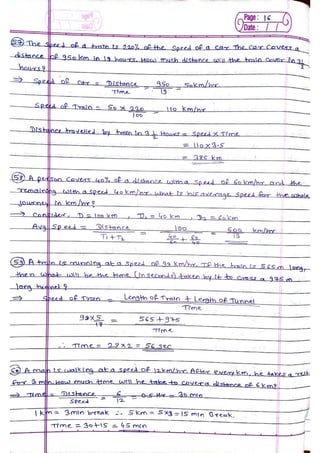 Page: 16
Date: / /
57 The speed of a train is 220% of the speed of a car. The car covers a
distance of 950 km in 19 hours. How much distance will the train cover in 3½
hours?
⇒ Speed of car = Distance / Time = 950 / 19 = 50 km/hr
Speed of Train = 50 × 220 / 100 = 110 km/hr
Distance travelled by train in 3½ Hours = Speed × Time
= 110 × 3.5
= 385 km
58 A person covers 40% of a distance with a speed of 60 km/hr. and the
remaining with a speed 40 km/hr. what is his average speed for the whole
journey in km/hr?
⇒ Consider, D = 100 km, D₁ = 40 km, D₂ = 60 km
Avg. Speed = Distance / T₁+T₂ = 100 / = 600 / 13 km/hr
59 A train is running at a speed of 99 km/hr. If the train is 565 m long,
then what will be the time (In seconds) taken by it to cross a 975 m
long tunnel?
⇒ Speed of Train = Length of Train + Length of Tunnel / Time
99 × 5 / 18 = 565 + 975 / Time
∴ Time = 28 × 2 = 56 sec
60 A man is walking at a speed of 12 km/hr. After every km, he takes a rest
for 3 min. How much time will he take to cover a distance of 6 km?
⇒ Time = Distance / Speed = 6 / 12 = 0.5 Hr = 30 min
1 km = 3 min break ∴ 5 km = 5×3 = 15 min Break.
Time = 30 + 15 = 45 min